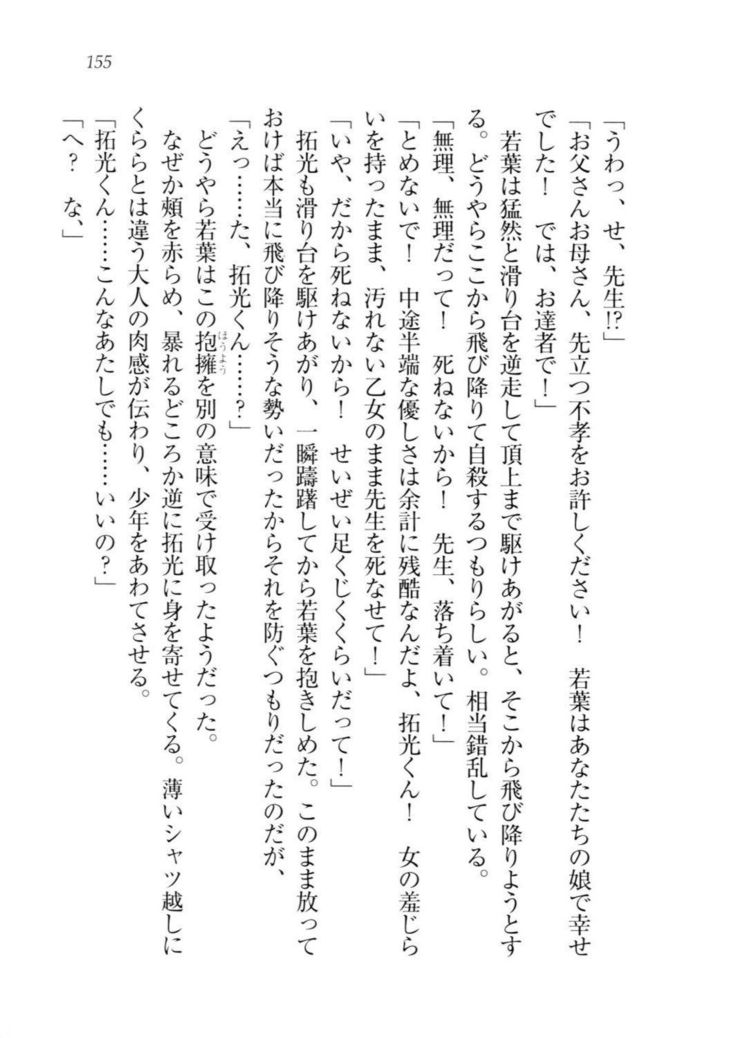 155
「うわっ、せ、先生!?」
「お父さんお母さん、先立つ不孝をお許しください！　若葉はあなたたちの娘で幸せ
でした！　では、お達者で！」
　若葉は猛然と滑り台を逆走して頂上まで駆けあがると、そこから飛び降りようとす
る。どうやらここから飛び降りて自殺するつもりらしい。相当錯乱している。
「無理、無理だって！　死ねないから！　先生、落ち着いて！」
「とめないで！　中途半端な優しさは余計に残酷なんだよ、拓光くん！　女の羞じら
いを持ったまま、汚れない乙女のまま先生を死なせて！」
「いや、だから死ねないから！　せいぜい足くじくくらいだって！」
　拓光も滑り台を駆けあがり、一瞬躊躇してから若葉を抱きしめた。このまま放って
おけば本当に飛び降りそうな勢いだったからそれを防ぐつもりだったのだが、
「えっ……た、拓光くん……？」
　どうやら若葉はこの抱擁を別の意味で受け取ったようだった。
ほうよう
　なぜか頰を赤らめ、暴れるどころか逆に拓光に身を寄せてくる。薄いシャツ越しに
くららとは違う大人の肉感が伝わり、少年をあわてさせる。
「拓光くん……こんなあたしでも……いいの？」
「へ？　な、」